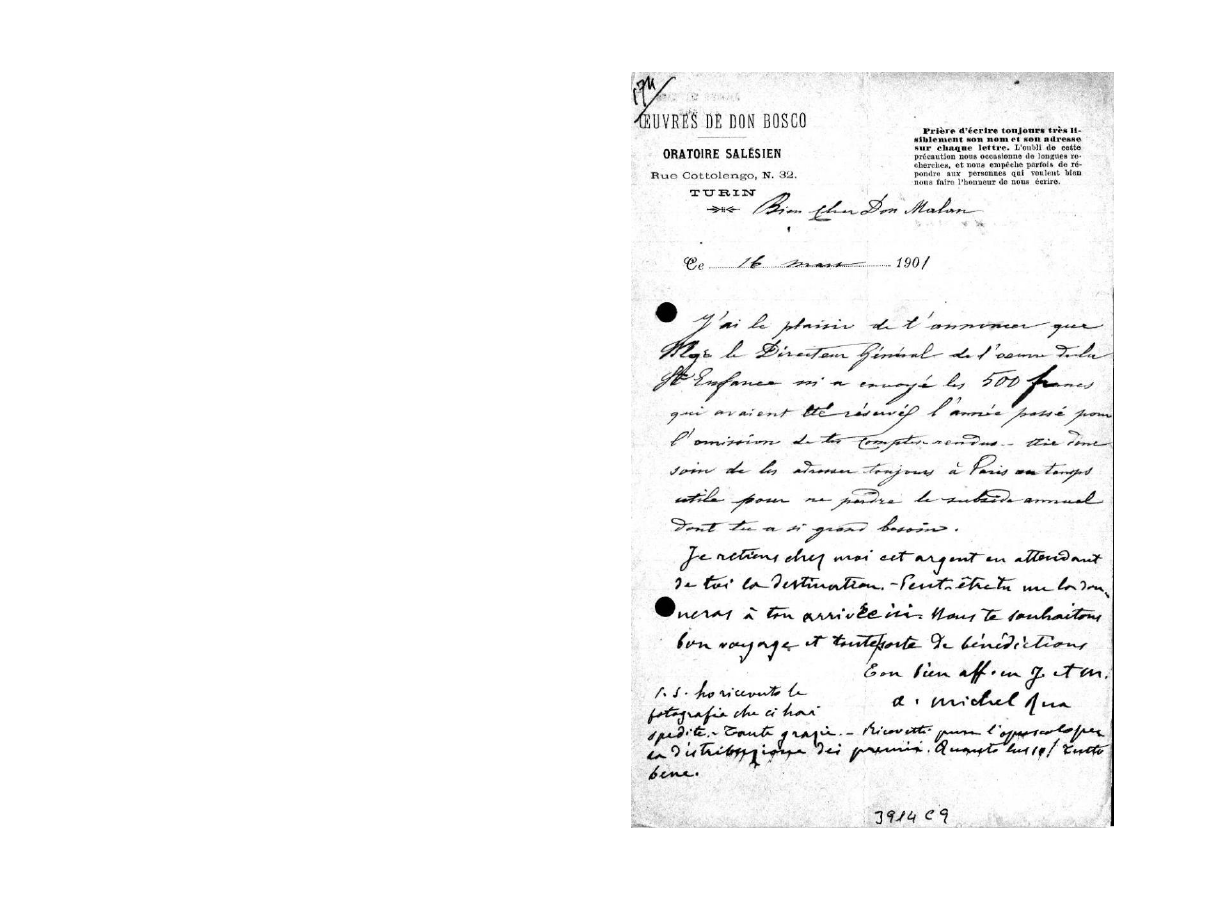 174
ŒUVRES DE DON BOSCO
ORATOIRE SALÉSIEN
Rue Cottolengo, N. 32.
TURIN
Prière d'écrire toujours très li-
siblement son nom et son adresse
sur chaque lettre. L'oubli de cette
précaution nous occasionne de longues re-
cherches, et nous empêche parfois de ré-
pondre aux personnes qui veulent bien
nous faire l'honneur de nous écrire.
Bien Cher Don Malan
Ce 16 mars 1901
J'ai le plaisir de t'annoncer que
Mgr le Directeur Général de l'oeuvre de la
Ste Enfance m'a envoyé les 500 francs
qui avaient été réservés l'année passé pour
l'omission de tes Comptes-rendus. Aie donc
soin de les adresser toujours à Paris au temps
utile pour ne perdre le subside annuel
dont tu a si grand besoin.
Je retiens chez moi cet argent en attendant
de toi la destination. - Peut-être tu me la don-
neras à ton arrivée ici. Nous te souhaitons
bon voyage et toute sorte de bénédictions
Ton bien aff. en J. et M.
a. Michel Rua
P. S. ho ricevuto le
fotografie che ci hai
spedite. - Tante grazie. - Ricevetti pure l'opuscolo per
la distribuzione dei premii. Quanto lusso! Tutto
bene.
3914 C 9